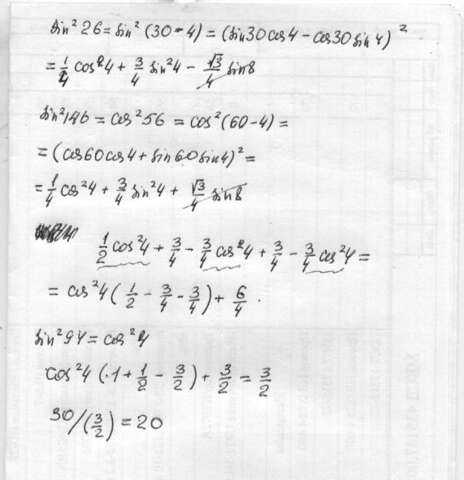 sin² 26 = sin² (30 - 4) = (sin30 cos4 - cos30 sin4)²
= 1/4 cos²4 + 3/4 sin²4 - √3/4 sin8
sin²146 = cos²56 = cos²(60-4) =
= (cos60cos4 + sin60sin4)² =
= 1/4 cos²4 + 3/4 sin²4 + √3/4 sin8
1/2 cos²4 + 3/4 - 3/4 cos²4 + 3/4 - 3/4 cos²4 =
= cos²4 (1/2 - 3/4 - 3/4) + 6/4.
sin²94 = cos²4
cos²4 (·1 + 1/2 - 3/2) + 3/2 = 3/2
30/(3/2) = 20